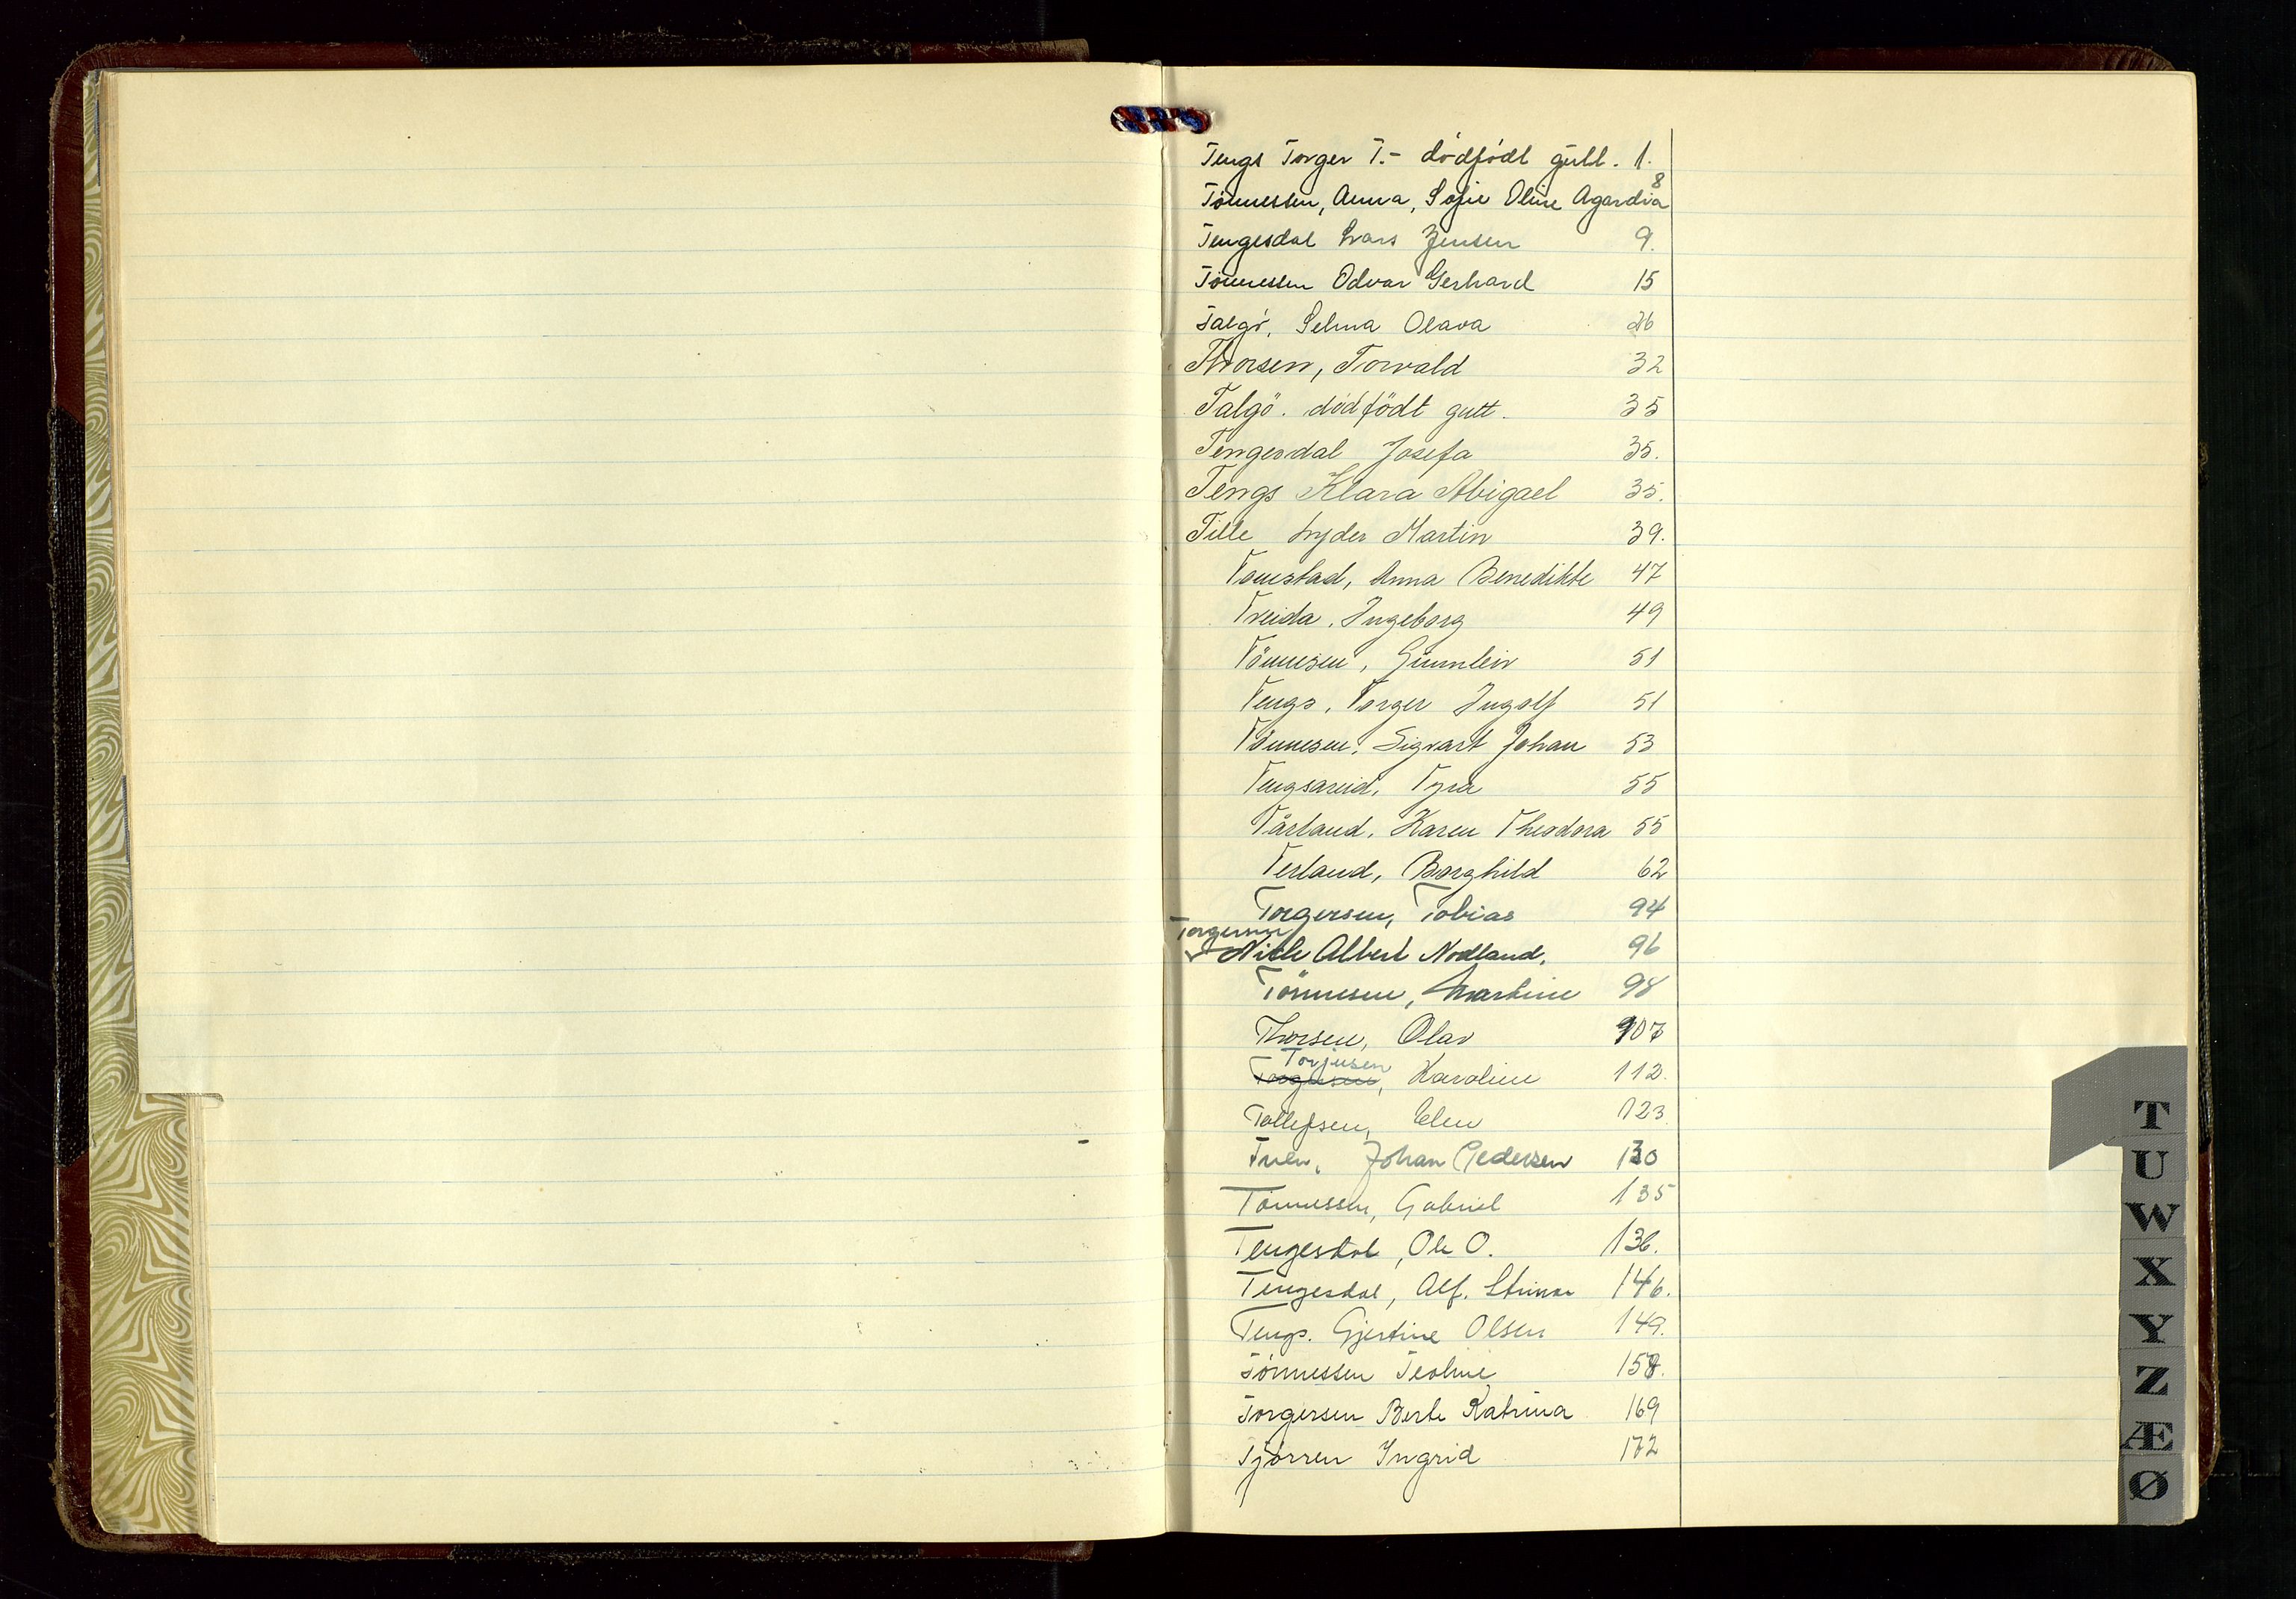 Tengs Torger T.- dödfödt gutt. 1.
8
Tönnessen, Anna, Sofie Oline Agardia
Tengesdal Lars Jensen 9.
Tönnessen Odvar Gerhard 15
Talgö, Selma Olava 26
Thorsen, Torvald 32
Talgö. dödfödt gutt. 35
Tengesdal Josefa 35.
Tengs Klara Abigael 35.
Tille Lyder Martin 39.
Tomstad, Anna Benedikte 47
Tveida, Ingeborg 49
Tönnesen, Gunnleiv 51
Tengs, Torger Ingolf 51
Tönnesen, Sigvart Johan 53
Tengsareid, Tyra 55
Tårland, Karen Theodora 55
Terland, Borghild 62
Torgersen, Tobias 94
Torgersen
Nils Albert Nodland. 96
Tönnesen, Martine 98
Thorsen, Olav 107
Torjusen
Torgersen, Karoline 112.
Tollefsen, Elen 123.
Tuen, Johan Pedersen 130
Tönnessen, Gabriel 135
Tengesdal, Ole O. 136.
Tengesdal, Alf. Steinar 146.
Tengs. Gjertine Olsen 149.
Tönnessen Teoline 157.
Torgersen Berte Katrina 169
Tjörren Ingrid 172
T
U
W
X
Y
Z
Æ
Ø